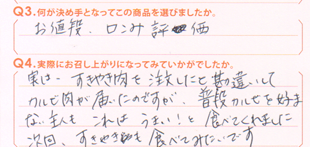 Q3.何が決め手となってこの商品を選びましたか。
お値段、口コミ評価
Q4.実際にお召し上がりになってみていかがでしたか。
実は…すきやき肉を注文したと勘違いして
カルビ肉が届いたのですが、普段カルビを好ま
ない主人も これは うまい!と食べてくれました
次回、すきやきも 食べてみたいです